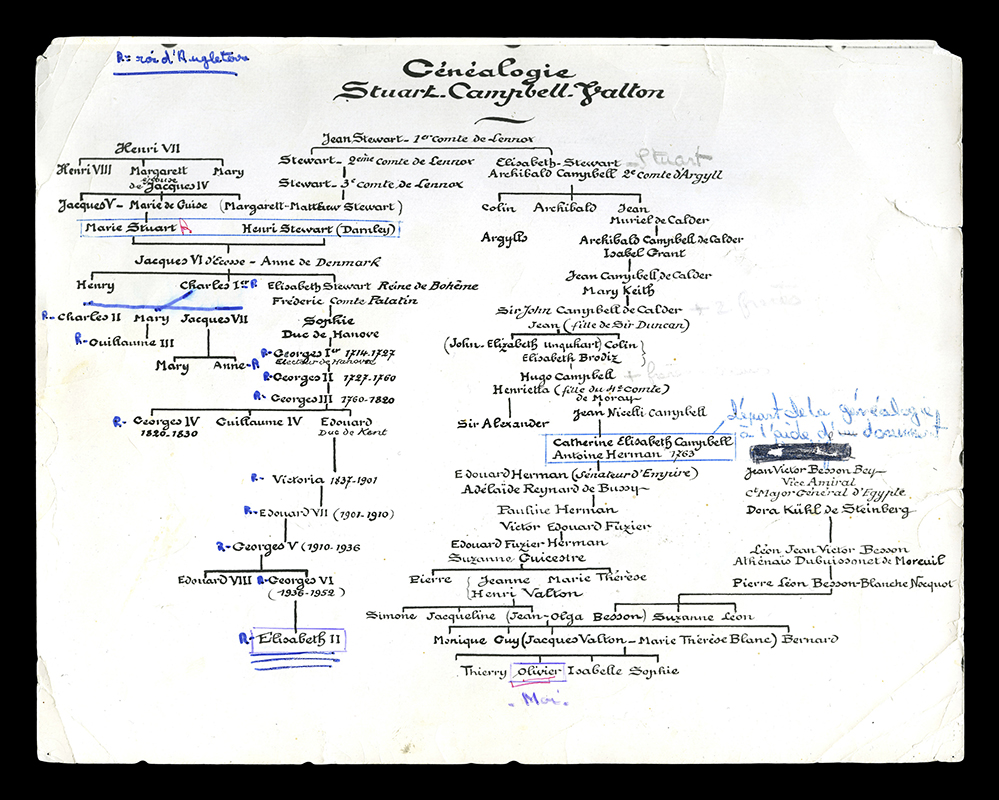 R= roi d'Angleterre
Généalogie
Stuart-Campbell-Valton
Jean Stewart - 1er comte de Lennox
Henri VII
Henri VIII Margarett Mary
épouse
de Jacques IV
Jacques V - Marie de Guise (Margarett-Matthew Stewart)
Marie Stuart R Henri Stewart (Darnley)
Jacques VI d'Ecosse - Anne de Denmark
Henry Charles Ier R Elisabeth Stewart Reine de Bohême
Frédéric Comte Palatin
R- Charles II Mary Jacques VII
Sophie
Duc de Hanove
R- Guillaume III
R- Georges Ier 1714-1727
Electeur de Hanovre
Mary Anne - R
R- Georges II 1727-1760
R- Georges III 1760-1820
R- Georges IV Guillaume IV Edouard
1820-1830 Duc de Kent
R- Victoria 1837-1901
R- Edouard VII (1901-1910)
R- Georges V (1910-1936
Edouard VIII R- Georges VI
(1936-1952)
R- Elisabeth II
Stewart - 2eme comte de Lennox
Stewart - 3e comte de Lennox
Elisabeth-Stewart - Stuart
Archibald Campbell 2e Comte d'Argyll
Colin Archibald Jean
Muriel de Calder
Argylls Archibald Campbell de Calder
Isabel Grant
Jean Campbell de Calder
Mary Keith
Sir John Campbell de Calder + 2 frères
Jean (fille de Sir Duncan)
(John-Elizabeth Unquhart) Colin
Elisabeth Brodiz
Hugo Campbell
Henrietta (fille du 4e Comte)
de Moray
Sir Alexander Jean Nicelli Campbell
départ de la généalogie
à l'aide d'un document
Catherine Elisabeth Campbell
Antoine Herman 1763
Edouard Herman (Sénateur d'Empire)
Adélaïde Reynard de Bussy
Pauline Herman
Victor Edouard Fuzier
Edouard Fuzier Herman
Suzanne Guicestre
Pierre Jeanne Marie Thérèse
Henri Valton
Jean Victor Besson Bey
Vice Amiral
Ct Major Général d'Egypte
Dora Kühl de Steinberg
Léon Jean Victor Besson
Athénaïs Dubuissonet de Moreuil
Pierre Léon Besson-Blanche Nocquot
Simone Jacqueline (Jean-Olga Besson) Suzanne Léon
Monique Guy (Jacques Valton - Marie Thérèse Blanc) Bernard
Thierry Olivier Isabelle Sophie
- Moi.